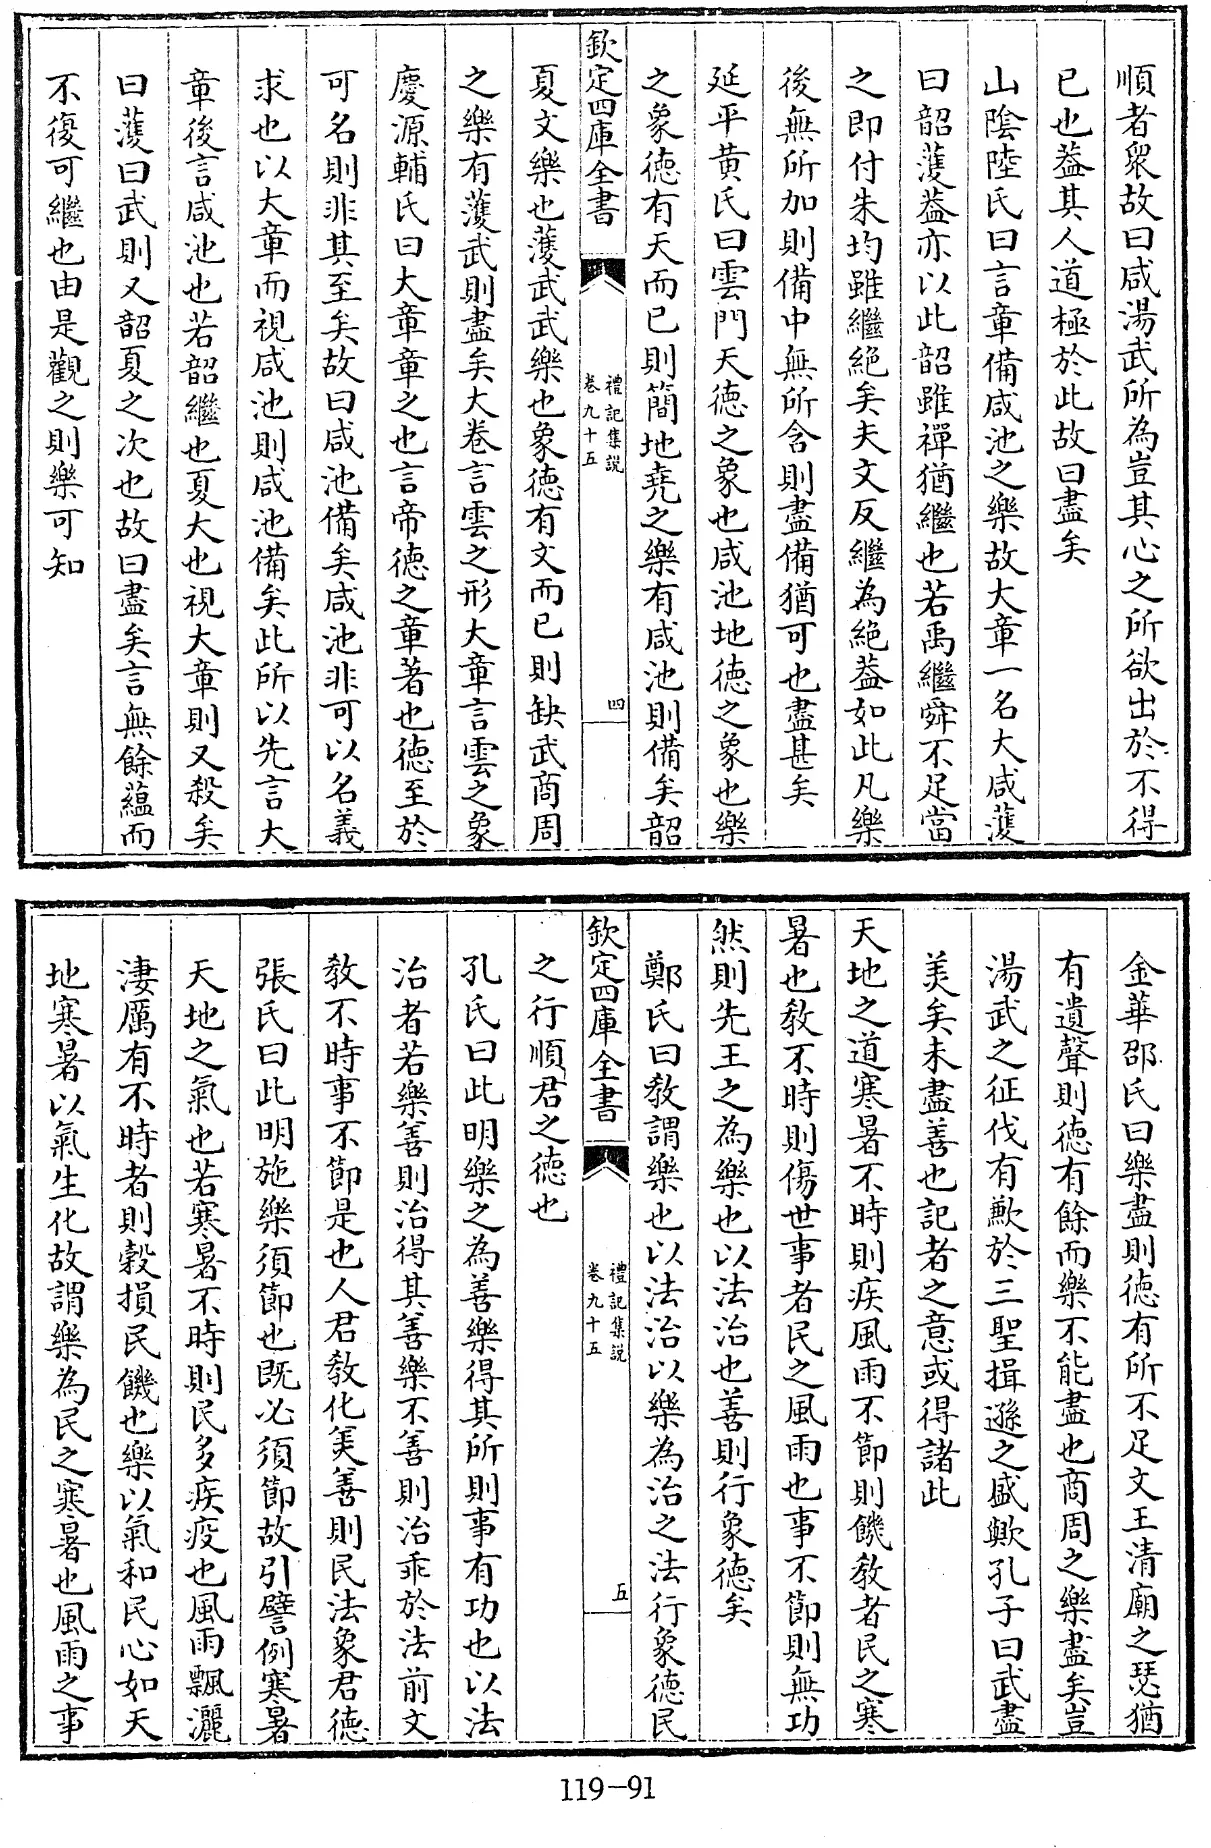 順者衆故曰咸湯武所為豈其心之所欲出於不得
已也葢其人道極於此故曰盡矣
山陰陸氏曰言章備咸池之樂故大章一名大咸濩
曰韶濩葢亦以此韶雖禪猶繼也若禹繼舜不足當
之即付朱均雖繼絶矣夫文反繼為絶葢如此凡樂
後無所加則備中無所含則盡備猶可也盡甚矣
延平黄氏曰雲門天德之象也咸池地德之象也樂
之象德有天而已則簡地堯之樂有咸池則備矣韶
欽定四庫全書
禮記集說
卷九十五
四
夏文樂也濩武武樂也象德有文而已則缺武商周
之樂有濩武則盡矣大卷言雲之形大章言雲之象
慶源輔氏曰大章章之也言帝德之章著也德至於
可名則非其至矣故曰咸池備矣咸池非可以名義
求也以大章而視咸池則咸池備矣此所以先言大
章後言咸池也若韶繼也夏大也視大章則又殺矣
曰濩曰武則又韶夏之次也故曰盡矣言無餘藴而
不復可繼也由是觀之則樂可知
金華邵氏曰樂盡則德有所不足文王清廟之瑟猶
有遺聲則德有餘而樂不能盡也商周之樂盡矣豈
湯武之征伐有歉於三聖揖遜之盛歟孔子曰武盡
美矣未盡善也記者之意或得諸此
天地之道寒暑不時則疾風雨不節則饑教者民之寒
暑也教不時則傷世事者民之風雨也事不節則無功
然則先王之為樂也以法治也善則行象德矣
鄭氏曰教謂樂也以法治以樂為治之法行象德民
欽定四庫全書
禮記集說
卷九十五
五
之行順君之德也
孔氏曰此明樂之為善樂得其所則事有功也以法
治者若樂善則治得其善樂不善則治乖於法前文
教不時事不節是也人君教化美善則民法象君德
張氏曰此明施樂須節也既必須節故引譬例寒暑
天地之氣也若寒暑不時則民多疾疫也風雨飄灑
淒厲有不時者則榖損民饑也樂以氣和民心如天
地寒暑以氣生化故謂樂為民之寒暑也風雨之事
119-91